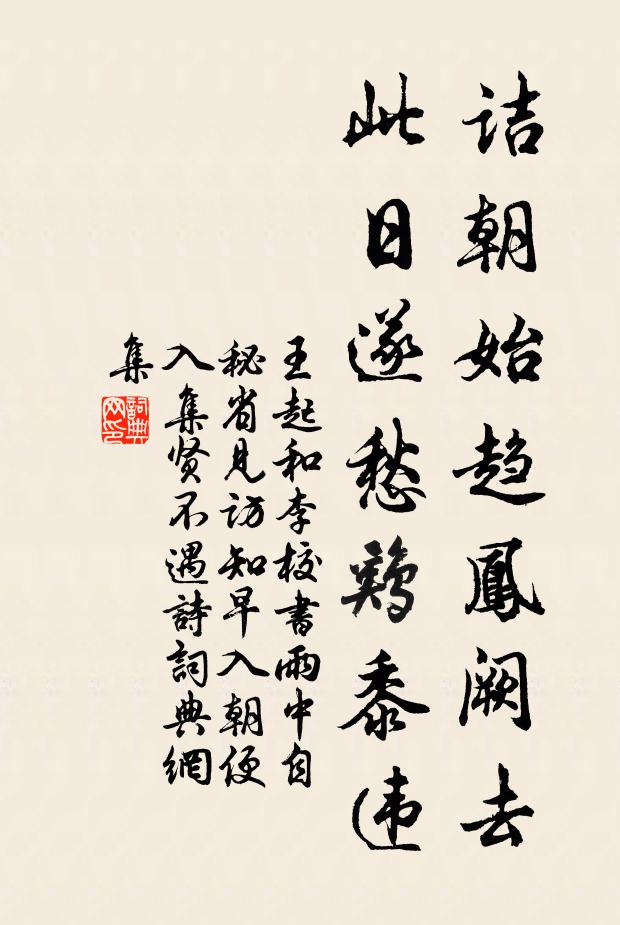 诘朝始趋鳳阙去
此日遂愁鷄黍违
王起和李校書雨中自
秘省見访知早入朝便
入集贤不遇詩詞典網
集
詞典
网印